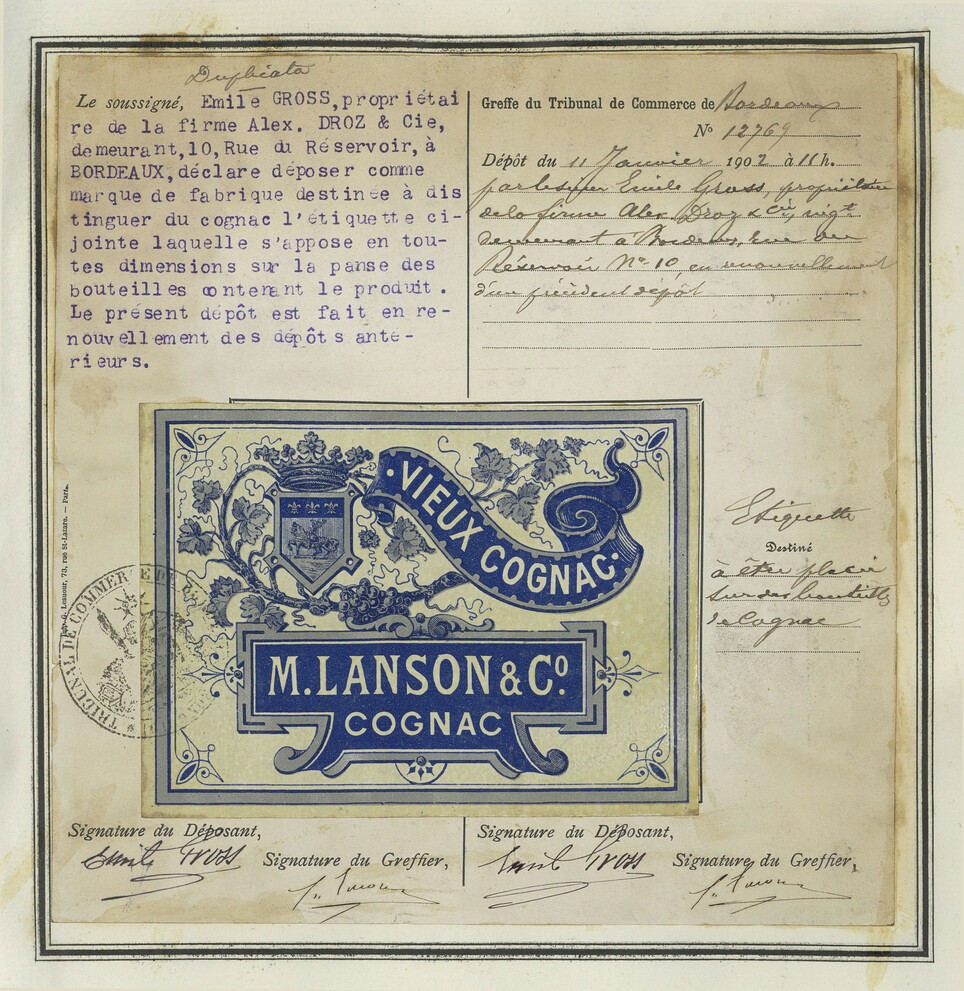 Duplicata
Le soussigné, Emile GROSS, propriétai
re de la firme Alex. DROZ & Cie,
demeurant, 10, Rue du Réservoir, à
BORDEAUX, déclare déposer comme
marque de fabrique destinée à dis
tinguer du cognac l'étiquette ci-
jointe laquelle s'appose en tou-
tes dimensions sur la panse des
bouteilles contenant le produit.
Le présent dépôt est fait en re-
nouvellement des dépôts anté-
rieurs.
Greffe du Tribunal de Commerce de Bordeaux
N° 12769
Dépôt du 11 Janvier 1902 à 11 h.
par le sieur Emile Gross, propriétaire
de la firme Alex Droz & Cie, négt
demeurant à Bordeaux, rue du
Réservoir N° 10, en renouvellement
d'un précédent dépôt
VIEUX COGNAC
M. LANSON & Co.
COGNAC
Etiquette
Destiné
à être placée
sur des bouteilles
de Cognac
Lemour, 73, rue St-Lazare. — Paris.
TRIBUNAL DE COMMERCE DE
Signature du Déposant,
Emile Gross
Signature du Greffier,
Signature du Déposant,
Emile Gross
Signature du Greffier,